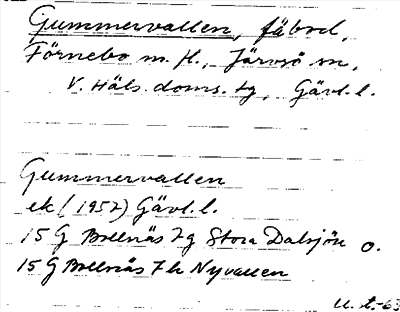 Gummervallen, fäbod,
Förnebo m. fl., Järvsö sn,
V. Häls. doms. tg, Gävl. l.
Gummervallen
ek (1957) Gävl. l.
15 G Bollnäs 7g Stora Dalsjön o.
15 G Bollnäs 7h Nyvallen
U. t.-63